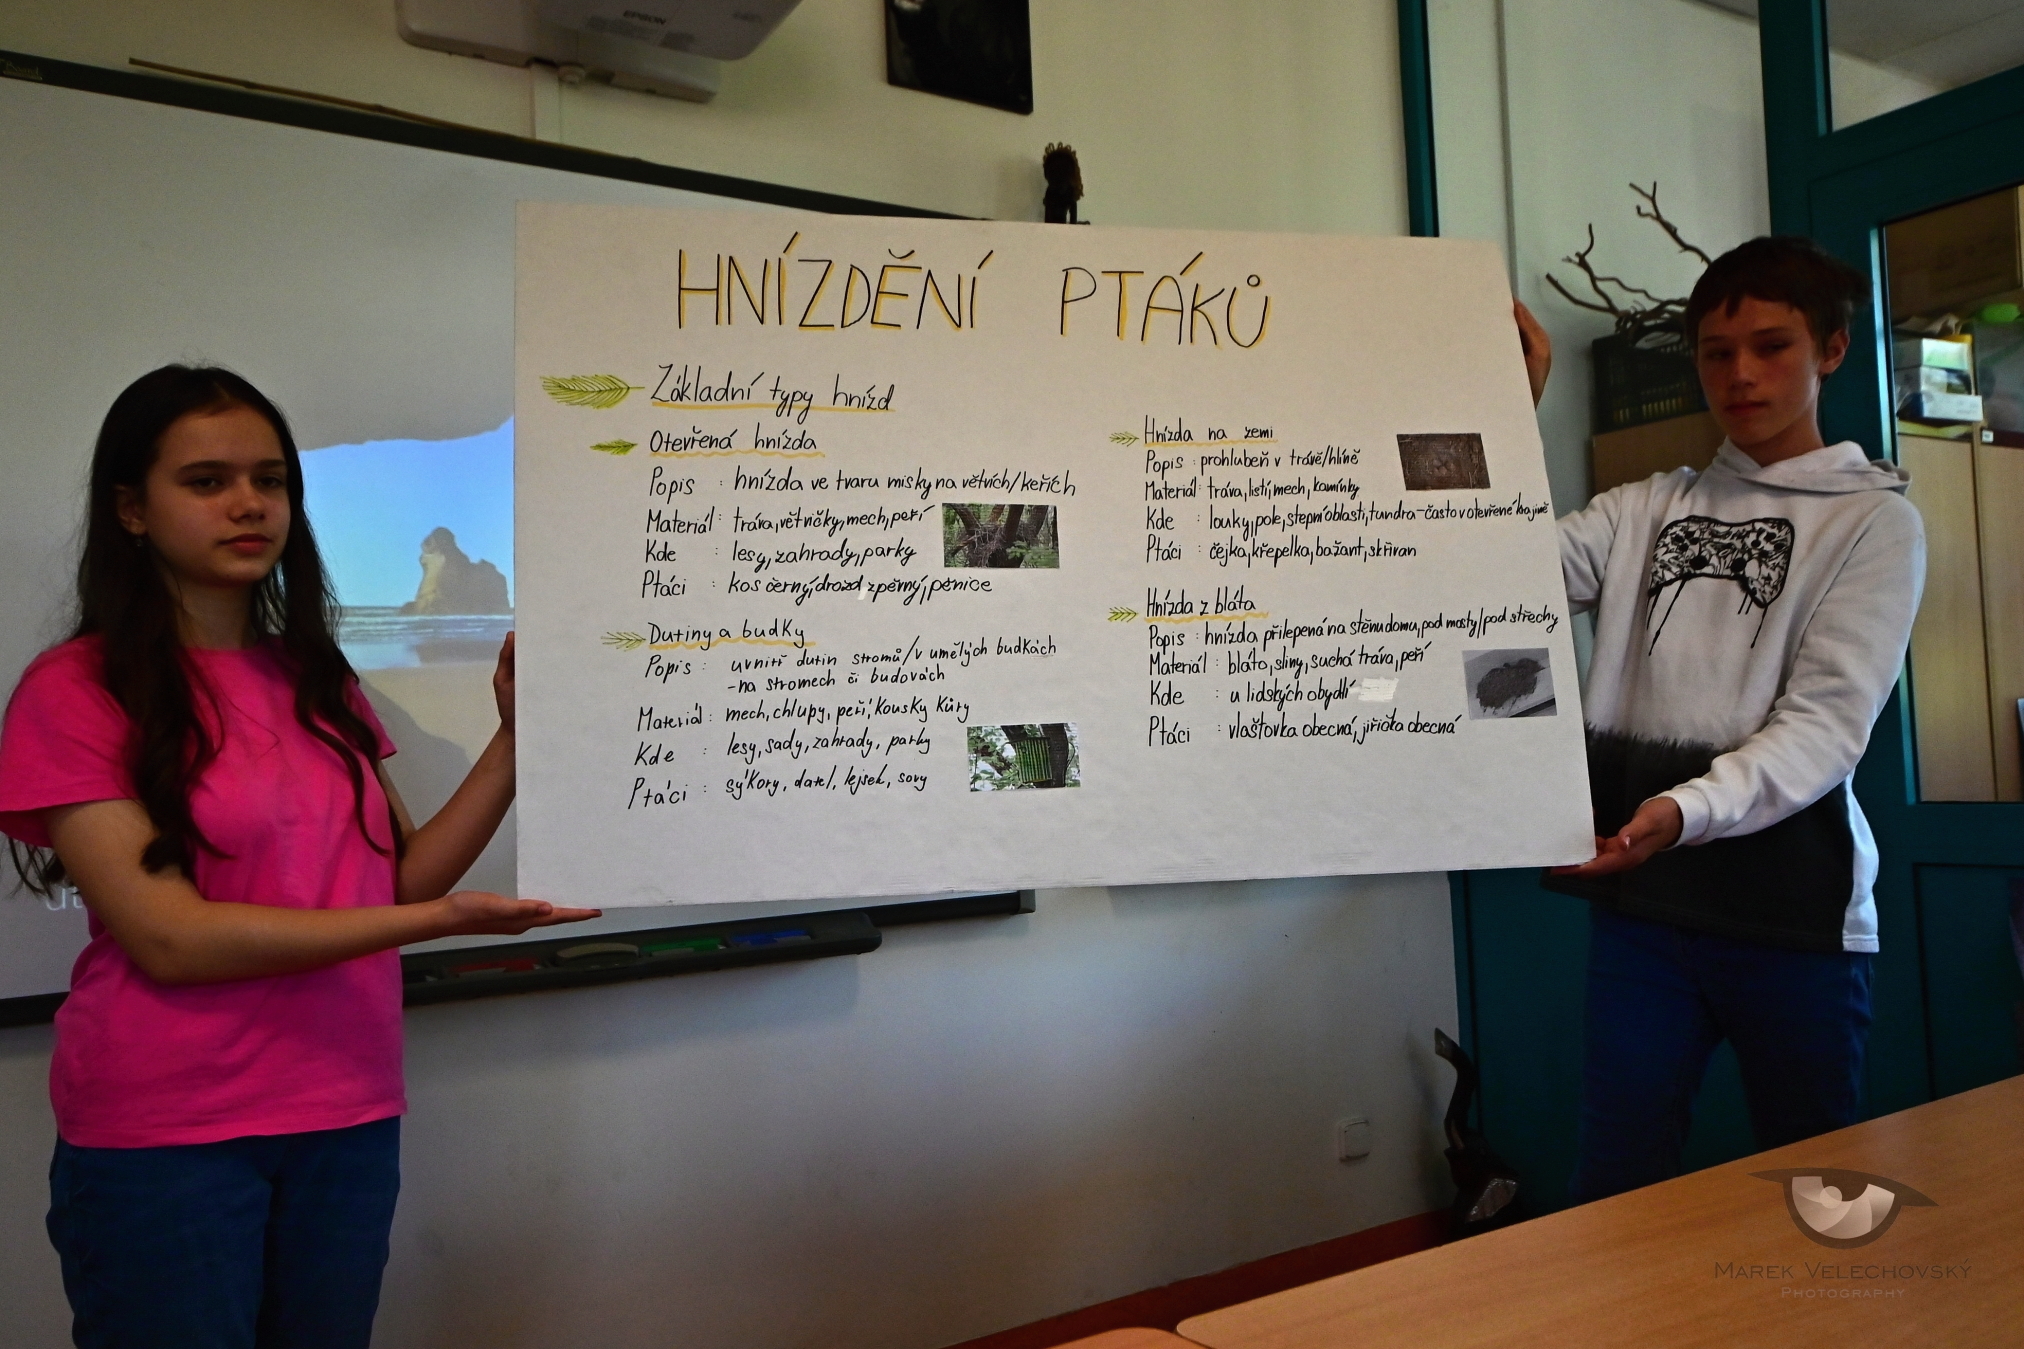 EPSON
HNÍZDĚNÍ PTÁKŮ
Základní typy hnízd
Otevřená hnízda
Popis : hnízda ve tvaru misky na větvích/keřích
Materiál : tráva, větvičky, mech, peří
Kde : lesy, zahrady, parky
Ptáci : kos černý, drozd zpěvný, pěnice
Dutiny a budky
Popis : uvnitř dutin stromů/v umělých budkách
-na stromech či budovách
Materiál : mech, chlupy, peří, kousky kůry
Kde : lesy, sady, zahrady, parky
Ptáci : sýkory, datel, lejsek, sovy
Hnízda na zemi
Popis : prohlubeň v trávě/hlíně
Materiál : tráva, listí, mech, kamínky
Kde : louky, pole, stepní oblasti, tundra-často v otevřené krajině
Ptáci : čejka, křepelka, bažant, skřivan
Hnízda z bláta
Popis : hnízda přilepená na stěnu domu, pod mosty/pod střechy
Materiál : bláto, sliny, suchá tráva, peří
Kde : u lidských obydlí
Ptáci : vlaštovka obecná, jiřička obecná
MAREK VELECHOVSKÝ
PHOTOGRAPHY